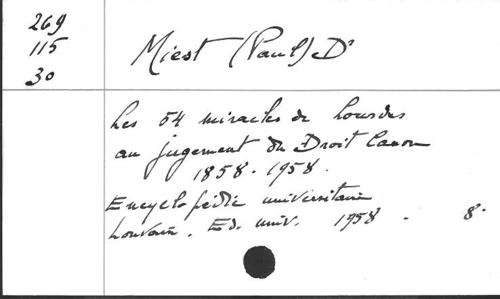 269
115
30
Miest (Paul) Dr
Les 54 miracles de Lourdes
au jugement du Droit Canon
1858-1958.
Encyclopédie universitaire
Louvain. Ed. univ. 1958. 8°